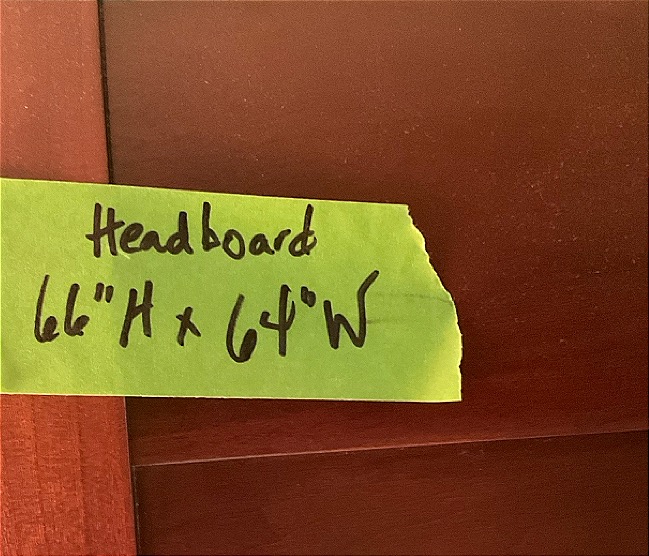 Headboard
66"H x 64"W